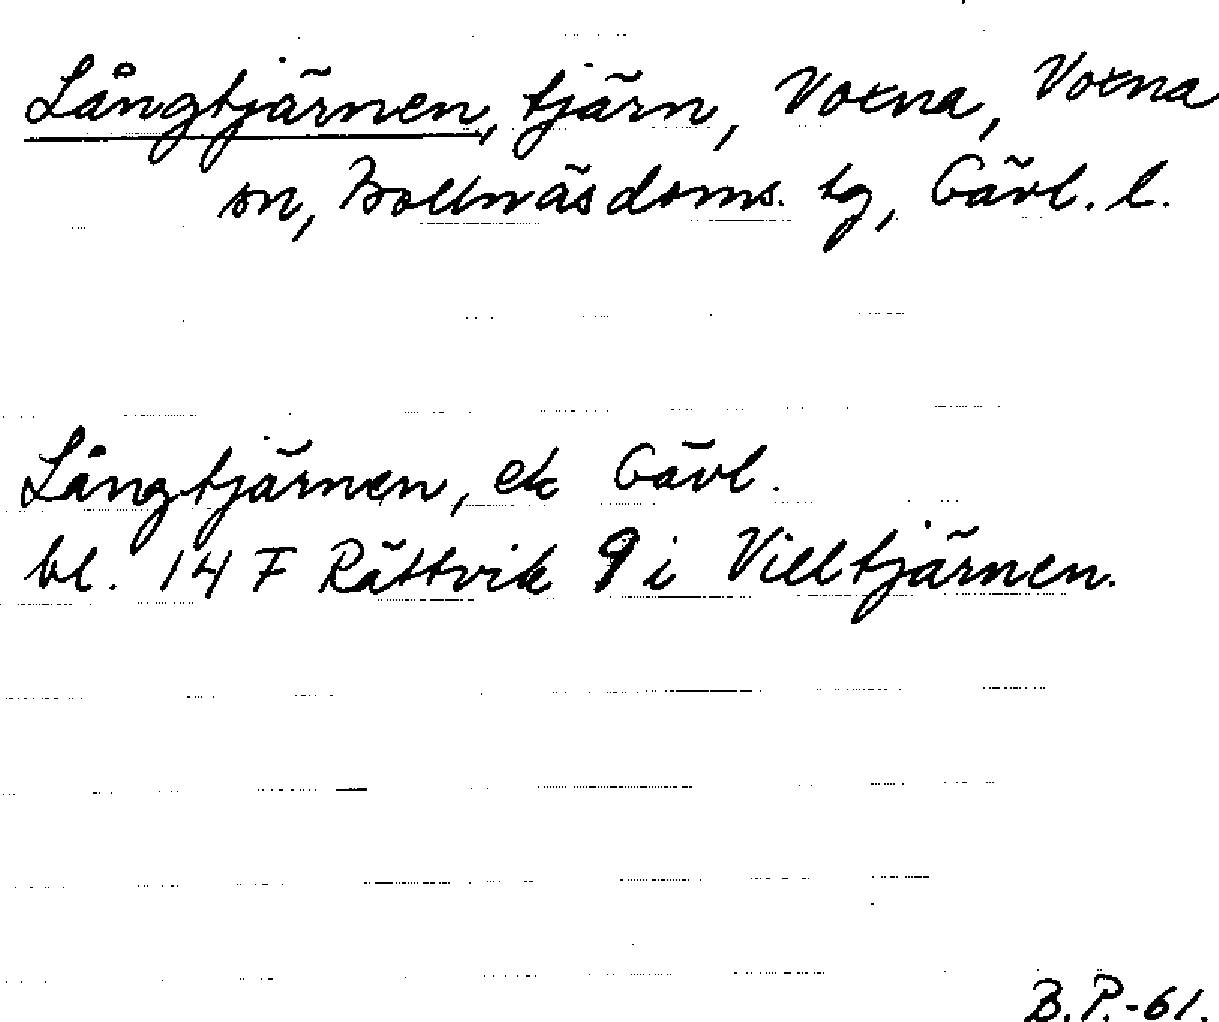 Långtjärnen, tjärn, Voxna, Voxna
sn, Bollnäsdoms. tg, Gävl. l.
Långtjärnen, ek Gävl.
bl. 14 F Rättvik 9 i Villtjärnen.
B.P.-61.